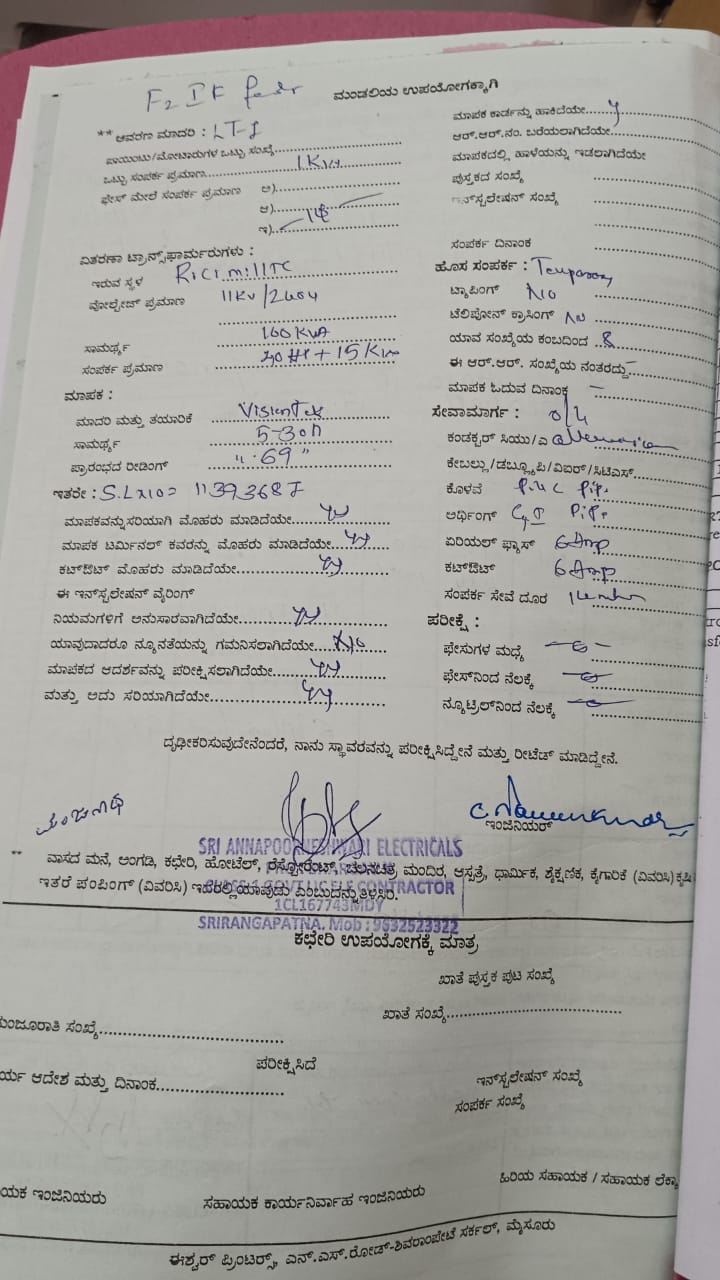 F2 IF
ಮಂಡಲಿಯ ಉಪಯೋಗಕ್ಕಾಗಿ
** ಆವರಣ ಮಾದರಿ : LT-1
ಪಾಯಿಂಟು/ಮೋಟಾರುಗಳ ಒಟ್ಟು ಸಂಖ್ಯೆ
ಒಟ್ಟು ಸಂಪರ್ಕ ಪ್ರಮಾಣ 1KW
ಫೇಸ್ ಮೇಲೆ ಸಂಪರ್ಕ ಪ್ರಮಾಣ ಅ)
ಆ)
ಇ)
ವಿತರಣಾ ಟ್ರಾನ್ಸ್‌ಫಾರ್ಮರುಗಳು :
ಇರುವ ಸ್ಥಳ
ವೋಲ್ಟೇಜ್ ಪ್ರಮಾಣ 11KV/
ಸಾಮರ್ಥ್ಯ 100 KVA
ಸಂಪರ್ಕ ಪ್ರಮಾಣ
ಮಾಪಕ :
ಮಾದರಿ ಮತ್ತು ತಯಾರಿಕೆ Visiontek
ಸಾಮರ್ಥ್ಯ 5-30A
ಪ್ರಾರಂಭದ ರೀಡಿಂಗ್ ".69"
ಇತರೇ : S.L No= 11393687
ಮಾಪಕವನ್ನು ಸರಿಯಾಗಿ ಮೊಹರು ಮಾಡಿದೆಯೇ
ಮಾಪಕ ಟರ್ಮಿನಲ್ ಕವರನ್ನು ಮೊಹರು ಮಾಡಿದೆಯೇ
ಕಟ್‌ಔಟ್ ಮೊಹರು ಮಾಡಿದೆಯೇ
ಈ ಇನ್‌ಸ್ಟಲೇಷನ್ ವೈರಿಂಗ್
ನಿಯಮಗಳಿಗೆ ಅನುಸಾರವಾಗಿದೆಯೇ
ಯಾವುದಾದರೂ ನ್ಯೂನತೆಯನ್ನು ಗಮನಿಸಲಾಗಿದೆಯೇ No
ಮಾಪಕದ ಆದರ್ಶವನ್ನು ಪರೀಕ್ಷಿಸಲಾಗಿದೆಯೇ
ಮತ್ತು ಅದು ಸರಿಯಾಗಿದೆಯೇ
ಮಾಪಕ ಕಾರ್ಡನ್ನು ಹಾಕಿದೆಯೇ
ಆರ್.ಆರ್.ನಂ. ಬರೆಯಲಾಗಿದೆಯೇ
ಮಾಪಕದಲ್ಲಿ ಹಾಳೆಯನ್ನು ಇಡಲಾಗಿದೆಯೇ
ಪುಸ್ತಕದ ಸಂಖ್ಯೆ
ಇನ್‌ಸ್ಟಲೇಷನ್ ಸಂಖ್ಯೆ
ಸಂಪರ್ಕ ದಿನಾಂಕ
ಹೊಸ ಸಂಪರ್ಕ : Temporary
ಟ್ಯಾಪಿಂಗ್ No
ಟೆಲಿಫೋನ್ ಕ್ರಾಸಿಂಗ್ No
ಯಾವ ಸಂಖ್ಯೆಯ ಕಂಬದಿಂದ 8
ಈ ಆರ್.ಆರ್. ಸಂಖ್ಯೆಯ ನಂತರದ್ದು
ಮಾಪಕ ಓದುವ ದಿನಾಂಕ
ಸೇವಾಮಾರ್ಗ :
ಕಂಡಕ್ಟರ್ ಸಿಯು/ಎ
ಕೇಬಲ್ಲು/ಡಬ್ಲ್ಯೂಪಿ/ವಿಐರ್/ಸಿಟಿಎಸ್
ಕೊಳವೆ P.V.C Pipe
ಅರ್ಥಿಂಗ್ GI Pipe
ಏರಿಯಲ್ ಫ್ಯೂಸ್ 6 Amp
ಕಟ್‌ಔಟ್ 6 Amp
ಸಂಪರ್ಕ ಸೇವೆ ದೂರ
ಪರೀಕ್ಷೆ :
ಫೇಸುಗಳ ಮಧ್ಯೆ
ಫೇಸ್‌ನಿಂದ ನೆಲಕ್ಕೆ
ನ್ಯೂಟ್ರಲ್‌ನಿಂದ ನೆಲಕ್ಕೆ
ದೃಢೀಕರಿಸುವುದೇನೆಂದರೆ, ನಾನು ಸ್ಥಾವರವನ್ನು ಪರೀಕ್ಷಿಸಿದ್ದೇನೆ ಮತ್ತು ರೀಟೆಡ್ ಮಾಡಿದ್ದೇನೆ.
ಮಂಜುನಾಥ
ಇಂಜಿನಿಯರ್
SRI ANNAPOORNESHWARI ELECTRICALS
** ವಾಸದ ಮನೆ, ಅಂಗಡಿ, ಕಛೇರಿ, ಹೋಟೆಲ್, ರೆಸ್ಟೋರೆಂಟ್, ಚಲನಚಿತ್ರ ಮಂದಿರ, ಆಸ್ಪತ್ರೆ, ಧಾರ್ಮಿಕ, ಶೈಕ್ಷಣಿಕ, ಕೈಗಾರಿಕೆ (ವಿವರಿಸಿ) ಕೃಷಿ
ಇತರೆ ಪಂಪಿಂಗ್ (ವಿವರಿಸಿ) ಇದರಲ್ಲಿ ಯಾವುದು ಎಂಬುದನ್ನು ತಿಳಿಸಿರಿ.
CONTRACTOR
1CL167743MDY
SRIRANGAPATNA. Mob : 9632523322
ಕಛೇರಿ ಉಪಯೋಗಕ್ಕೆ ಮಾತ್ರ
ಖಾತೆ ಪುಸ್ತಕ ಪುಟ ಸಂಖ್ಯೆ
ಮಂಜೂರಾತಿ ಸಂಖ್ಯೆ
ಖಾತೆ ಸಂಖ್ಯೆ
ಪರೀಕ್ಷಿಸಿದೆ
ರ್ಯ ಆದೇಶ ಮತ್ತು ದಿನಾಂಕ
ಇನ್‌ಸ್ಟಲೇಷನ್ ಸಂಖ್ಯೆ
ಸಂಪರ್ಕ ಸಂಖ್ಯೆ
ಯಕ ಇಂಜಿನಿಯರು
ಸಹಾಯಕ ಕಾರ್ಯನಿರ್ವಾಹ ಇಂಜಿನಿಯರು
ಹಿರಿಯ ಸಹಾಯಕ / ಸಹಾಯಕ ಲೆಕ್ಕಾ
ಈಶ್ವರ್ ಪ್ರಿಂಟರ್ಸ್, ಎನ್.ಎಸ್.ರೋಡ್-ಶಿವರಾಂಪೇಟೆ ಸರ್ಕಲ್, ಮೈಸೂರು